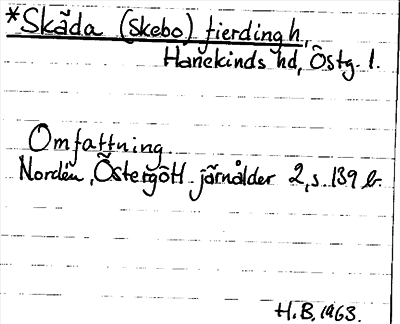 *Skåda (Skebo) fierdingh,
Hanekinds hd, Östg. l.
Omfattning.
Nordén, Östergötl. järnålder 2, s. 139 b.
H.B. 1963.